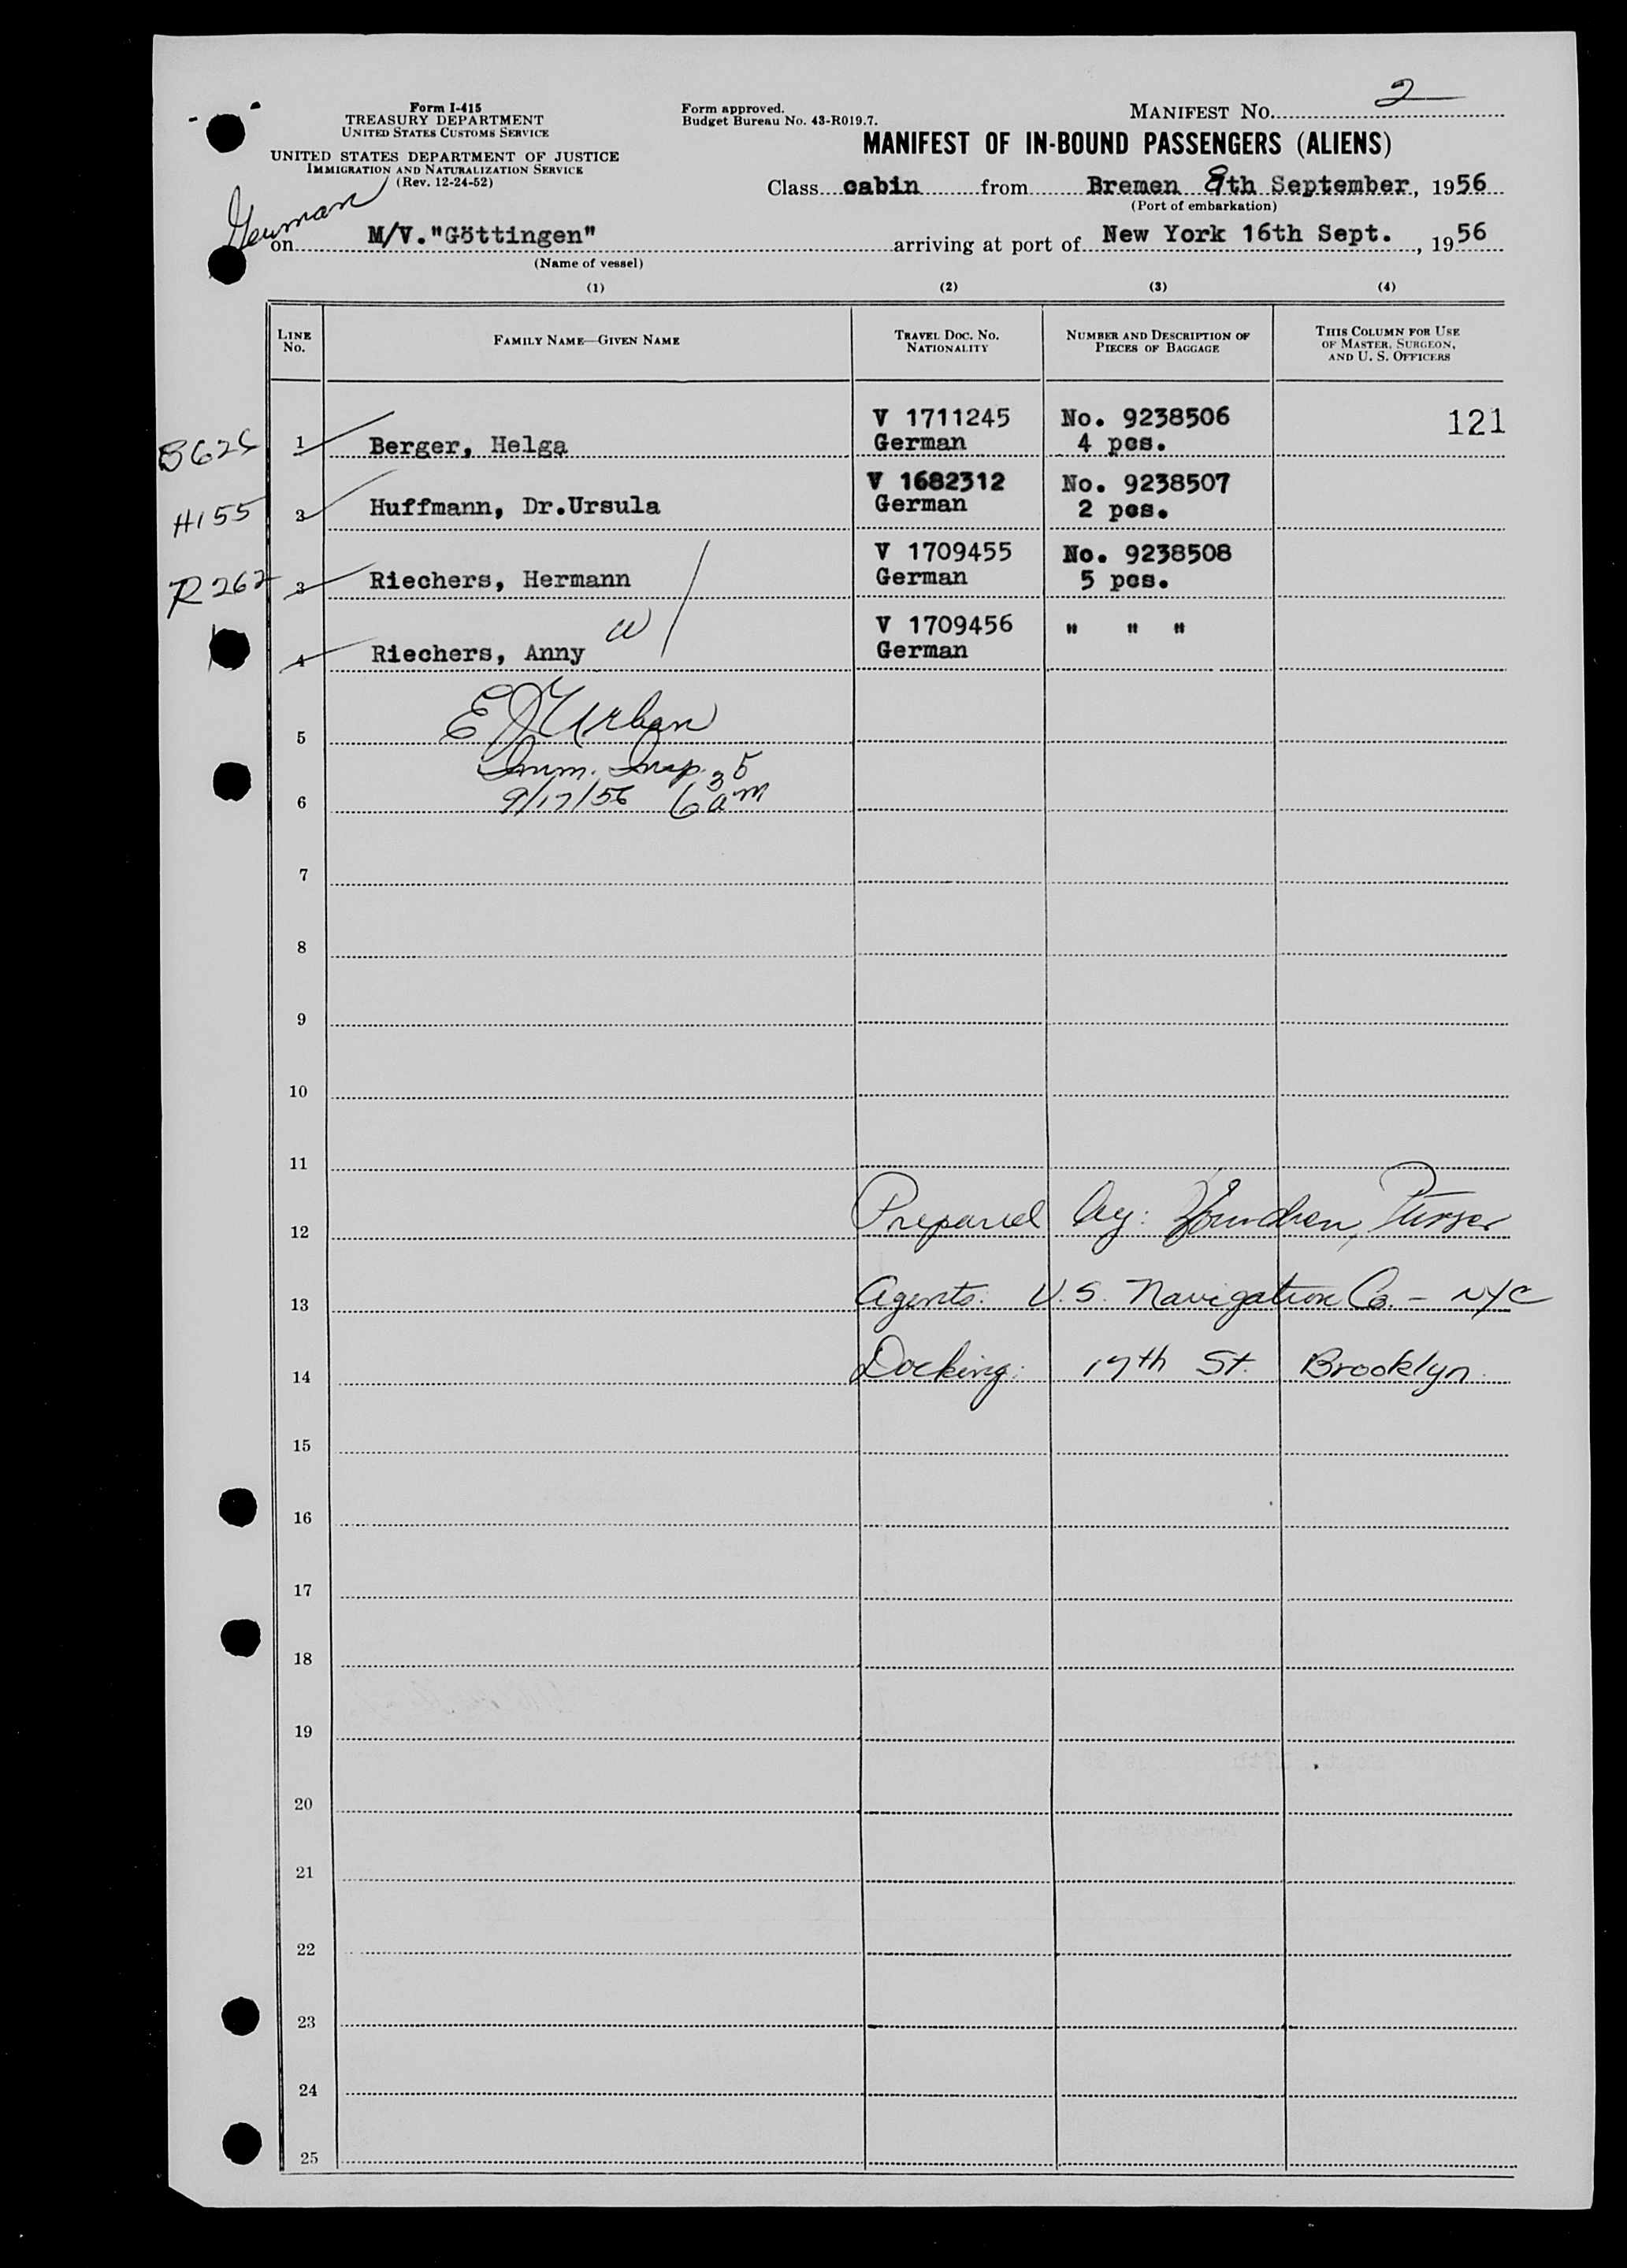 Form I-415
TREASURY DEPARTMENT
UNITED STATES CUSTOMS SERVICE
UNITED STATES DEPARTMENT OF JUSTICE
IMMIGRATION AND NATURALIZATION SERVICE
(Rev. 12-24-52)
Form approved.
Budget Bureau No. 43-R019.7.
MANIFEST NO. 2
MANIFEST OF IN-BOUND PASSENGERS (ALIENS)
Class cabin from Bremen 8th September, 1956
(Port of embarkation)
German
on M/V."Göttingen" arriving at port of New York 16th Sept., 1956
(Name of vessel)
(1) (2) (3) (4)
LINE NO. FAMILY NAME—GIVEN NAME TRAVEL DOC. NO. NATIONALITY NUMBER AND DESCRIPTION OF PIECES OF BAGGAGE THIS COLUMN FOR USE OF MASTER, SURGEON, AND U. S. OFFICERS
V 1711245 No. 9238506 121
1 Berger, Helga German 4 pcs.
V 1682312 No. 9238507
H155 2 Huffmann, Dr.Ursula German 2 pcs.
V 1709455 No. 9238508
R262 3 Riechers, Hermann German 5 pcs.
V 1709456 " " "
4 Riechers, Anny W German
E J Urban
5
Imm. Insp.
6 9/17/56 6 35 am
7
8
9
10
11
12 Prepared by: Purser
13 Agents: U.S. Navigation Co. - NYC
14 Docking: 17th St. Brooklyn
15
16
17
18
19
20
21
22
23
24
25